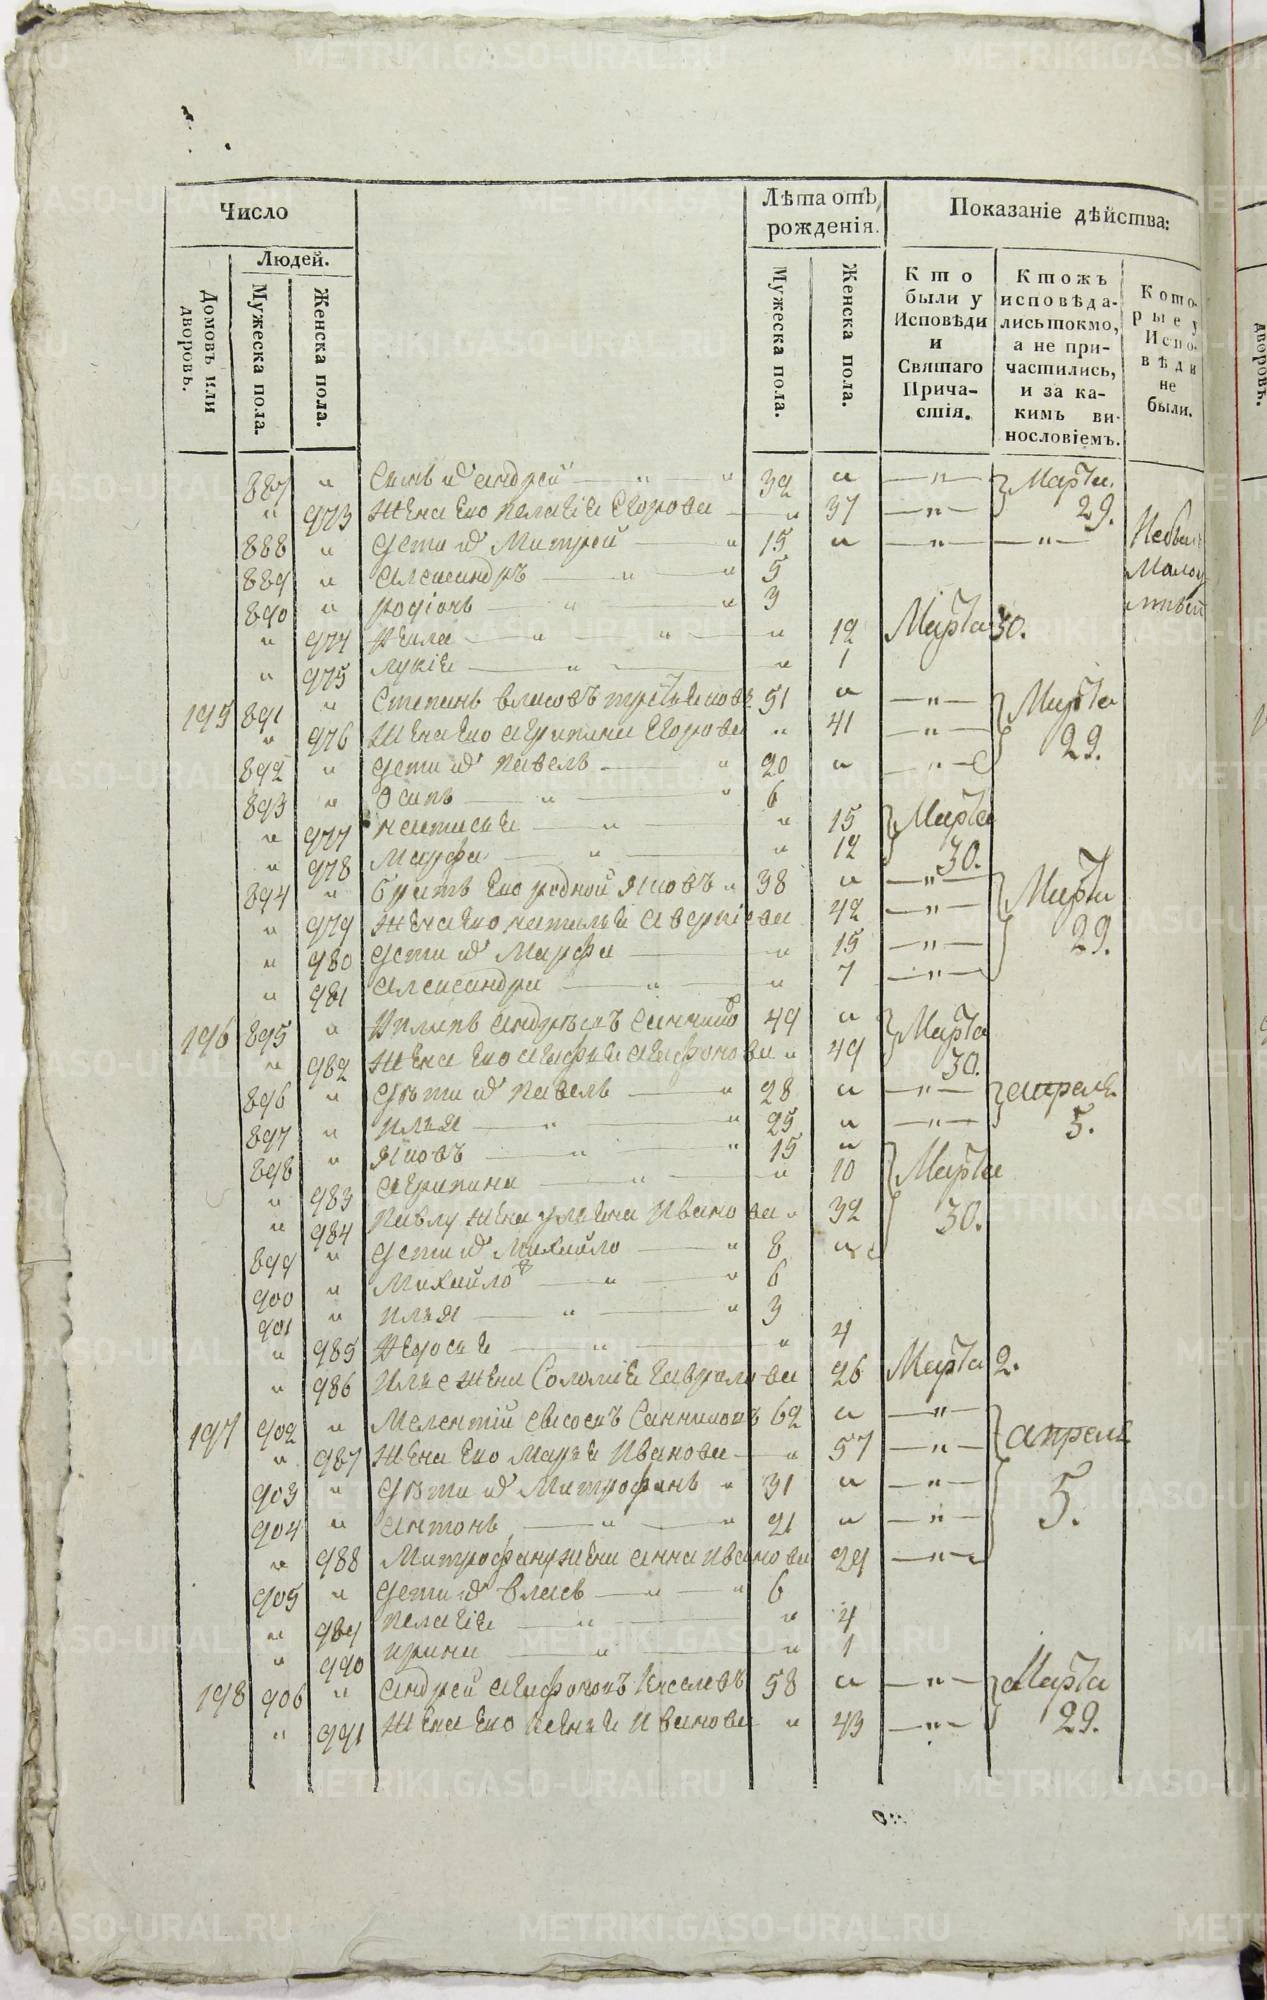 Число
Лѣта отъ рожденія.
Показаніе дѣйства:
Людей.
Домовъ или дворовъ.
Мужеска пола.
Женска пола.
Мужеска пола.
Женска пола.
Кто были у Исповѣди и Святаго Причастія.
Ктожъ исповѣдались токмо, а не причастились, и за какимъ винословіемъ.
Которые у Исповѣди не были.
887 " Андрей " " 39 " — " — Марта
" 973 жена ево Пелагія Егорова " 37 — " — 29.
888 " дети их Митрей " 15 " — " — — " —
889 " Александръ " " 5 Малол
890 " Родіонъ " " 3
" 974 " " " 12 Марта 30.
" 975 Лукія " " 1
195 891 " Степанъ Власовъ 51 " — " — Марта
" 976 жена ево Агрипина Егорова " 41 — " — 29.
892 " дети их Павелъ " 20 " — " —
893 " Осипъ " " 6
" 977 Настасья " " 15 Марта
" 978 Марфа " " 12 30.
894 " братъ ево родной Яковъ " 38 " — " — Марта
" 979 жена ево Наталья Аверкіева 42 — " — 29.
" 980 дети их Марфа " 15 — " —
" 981 Александра " " 7 — " —
196 895 " 49 " Марта
" 982 жена ево " 49 30.
896 " дѣти их Павелъ " 28 " — " — апреля
897 " Илья " " 25 " — " — 5.
898 " Яковъ " " 15 " Марта
" 983 Агрипина " " 10
" 984 Павлу жена Ульяна Иванова " 32 30.
899 " дети их Михайло " 8 "
900 " Михайло " " 6
901 " Илья " " 3
" 985 Федосья " " 4
" 986 Илье жена Соломія Гаврилова 26 Марта 2.
197 902 " Мелентій 62 " — " — апреля
" 987 жена ево Марья Иванова " 57 — " — 5.
903 " дѣти их Митрофанъ " 31 " — " —
904 " Антонъ " " 21 " — " —
" 988 Митрофану жена Анна Иванова 24 — " —
905 " дети их Власъ " " 6
" 989 Пелагія " " 4
" 990 Ирина " " 1
198 906 " Андрей 58 " — " — Марта
" 991 жена ево Иванова " 43 — " — 29.
дворовъ.
METRIKI.GASO-URAL.RU